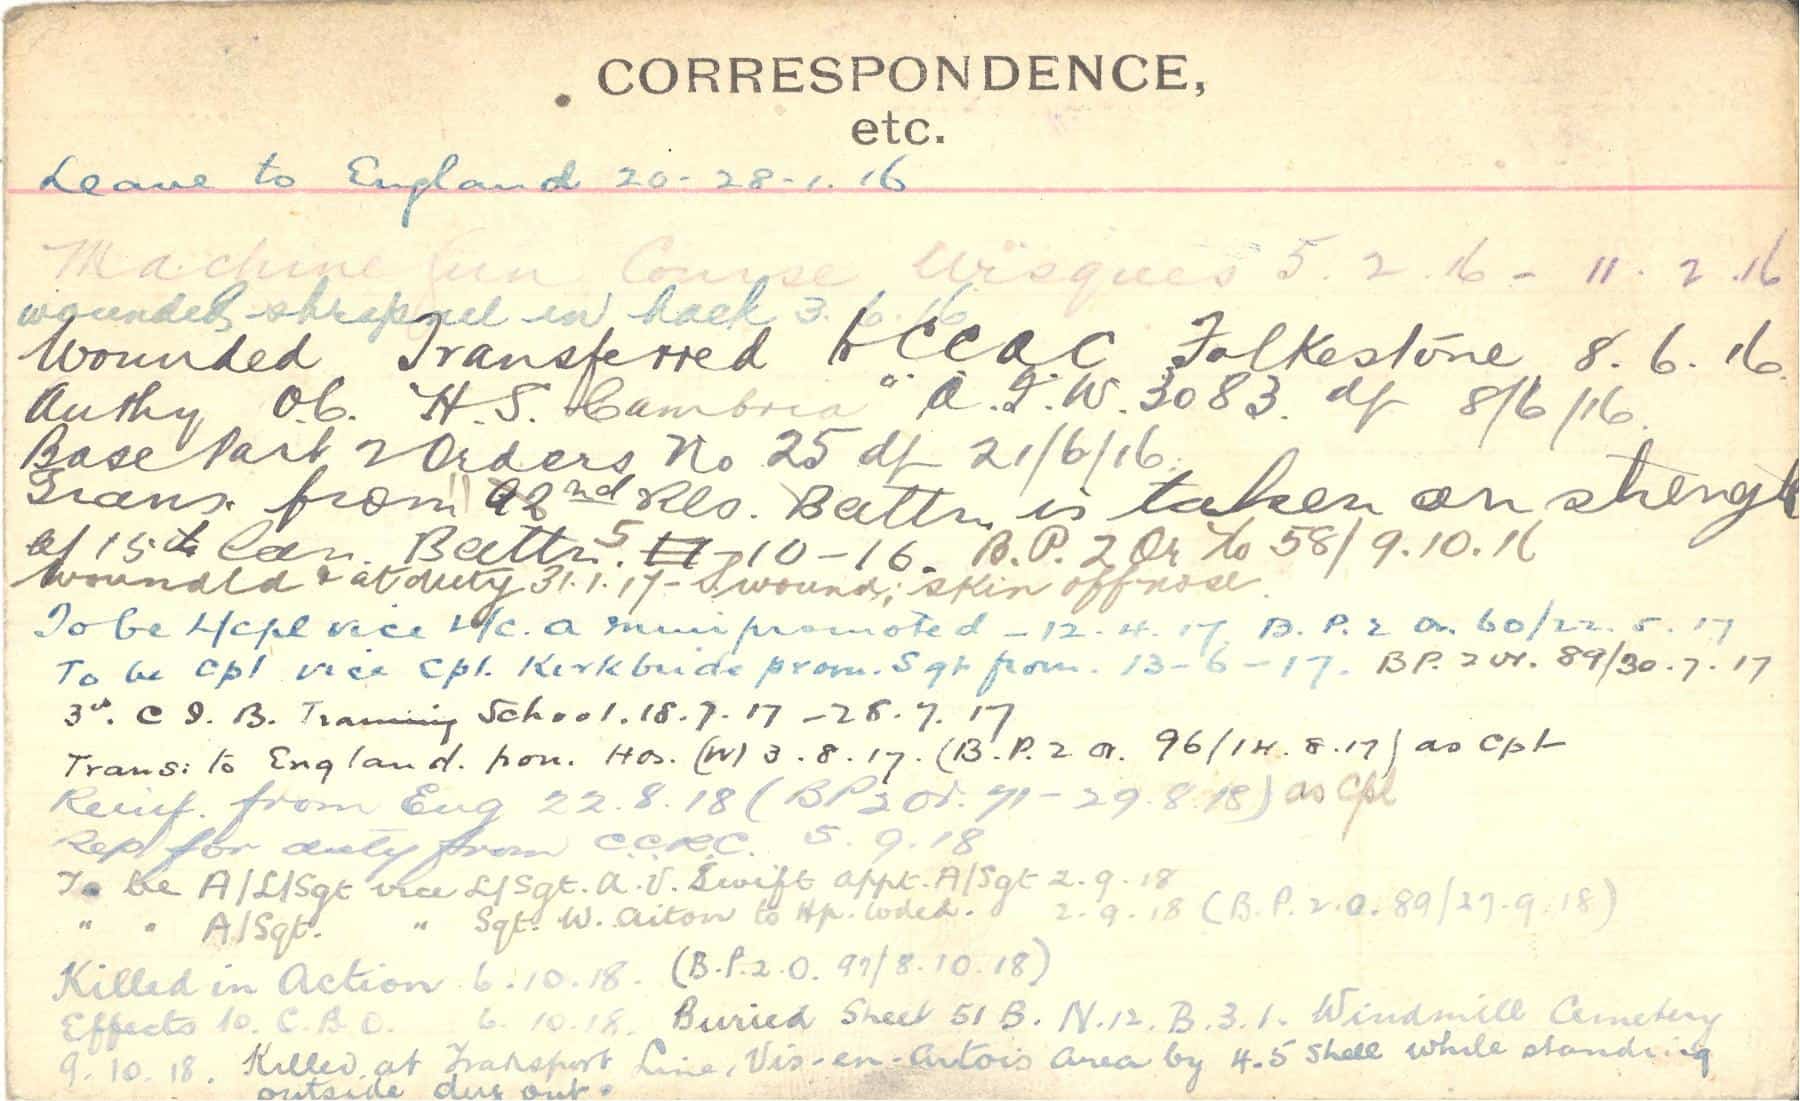 CORRESPONDENCE,
etc.
Leave to England 20-28-1.16
Machine Gun Course Wisques 5.2.16 - 11.2.16
wounded shrapnel in back 3.6.16
Wounded Transferred to CCAC Folkestone 8.6.16.
Authy Ob. "H.S. Cambria" A.F.W. 3083. df 8/6/16.
Base Part 2 Orders No 25 df 21/6/16.
Trans. from 92nd Res. Battn. is taken on strength
of 15th Can. Battn. 5-10-16. B.P. 2 Or No 58/9.10.16
Wounded & at duty 31.1.17 - S. wound; skin off nose.
To be L/Cpl vice L/c. A promoted - 12.4.17 B.P. 2 Or. 60/22.5.17
To be Cpl vice Cpl. Kirkbride prom. Sgt from. 13-6-17. B.P. 2 Or. 89/30.7.17
3rd. C I. B. Training School. 18.7.17 - 28.7.17
Trans: to England. from. Hos. (W) 3.8.17. (B.P. 2 Or. 96/14.8.17) as Cpl
Reinf. from Eng 22.8.18 (BP2 Or. 71 - 29.8.18) as Cpl
Rep for duty from C.C.R.C. 5.9.18
To be A/L/Sgt vice L/Sgt. A.V. Swift appt. A/Sgt 2.9.18
" " A/Sgt. " Sgt. W. Aiton to Hp. Wded. 2.9.18 (B.P. 2.O. 89/27.9.18)
Killed in Action 6.10.18. (B.P.2.O. 97/8.10.18)
Effects to. C.B.O. 6.10.18. Buried Sheet 51 B. N.12. B.3.1. Windmill Cemetery
9.10.18. Killed at Transport Line, Vis-en-Artois area by 4.5 shell while standing
outside dug out.